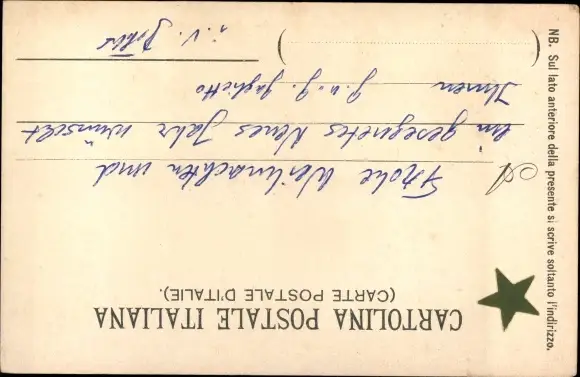 CARTOLINA POSTALE ITALIANA
(CARTE POSTALE D'ITALIE).
A
Frohe Weihnachten und
ein gesegnetes Neues Jahr wünscht
Ihnen J. u. J.
i. V.
NB. Sul lato anteriore della presente si scrive soltanto l'indirizzo.